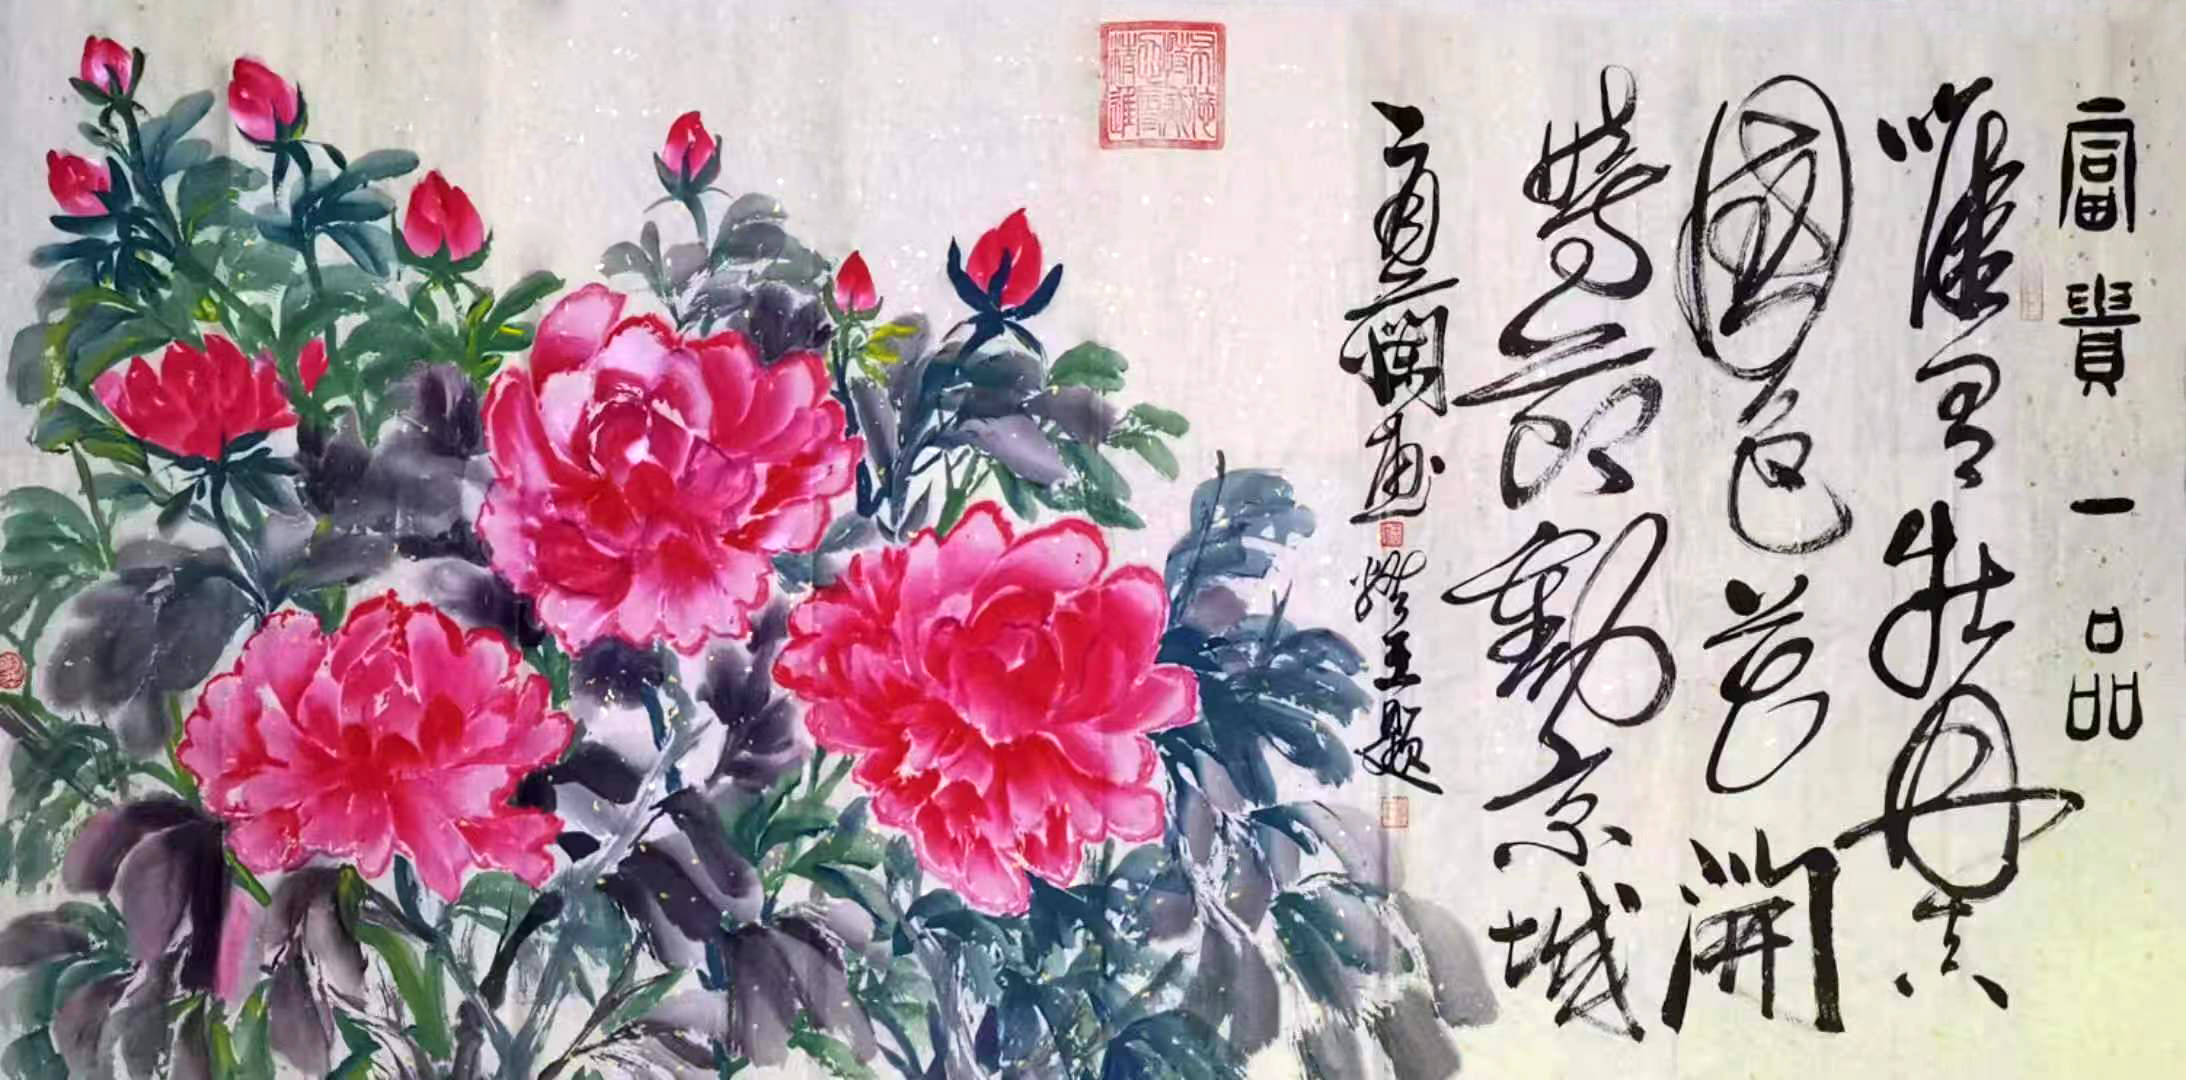 富貴一品
唯有牡丹真
國色花開
時節動京城
畫
題